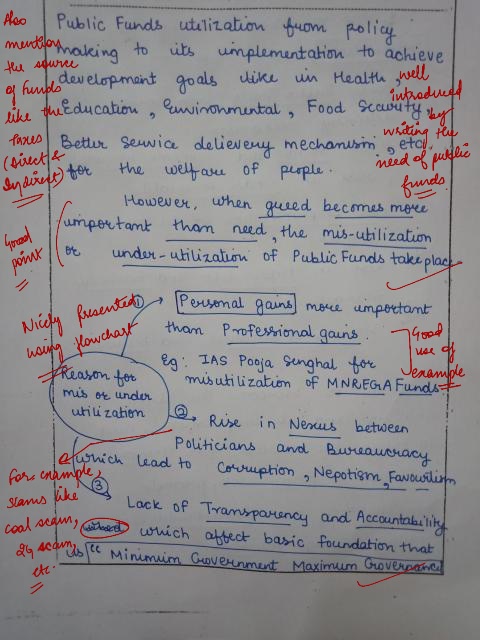 Public Funds utilization from policy
making to its implementation to achieve
development goals like in Health,
Education, Environmental, Food Security,
Better Service delievery mechanism, etc.
for the welfare of people.
Also
mention
the source
of funds
like the
taxes
(Direct &
Indirect)
well
introduced
by
writing the
need of public
funds.
However, when gueed becomes more
important than need, the mis-utilization
or under-utilization of Public Funds take place
Good
point
Nicely presented
using flowchart
Reason for
mis or under
utilization
① Personal gains more important
than Professional gains.
Eg: IAS Pooja Senghal for
misutilization of MNREGA Funds.
Good
use of
example
② Rise in Nexus between
Politicians and Bureaucracy
which lead to Corruption, Nepotism, Favouritism
For example,
scams like
coal scam,
2G scam,
etc.
③ Lack of Transparency and Accountability
which affect basic foundation that
is "Minimum Government Maximum Governance